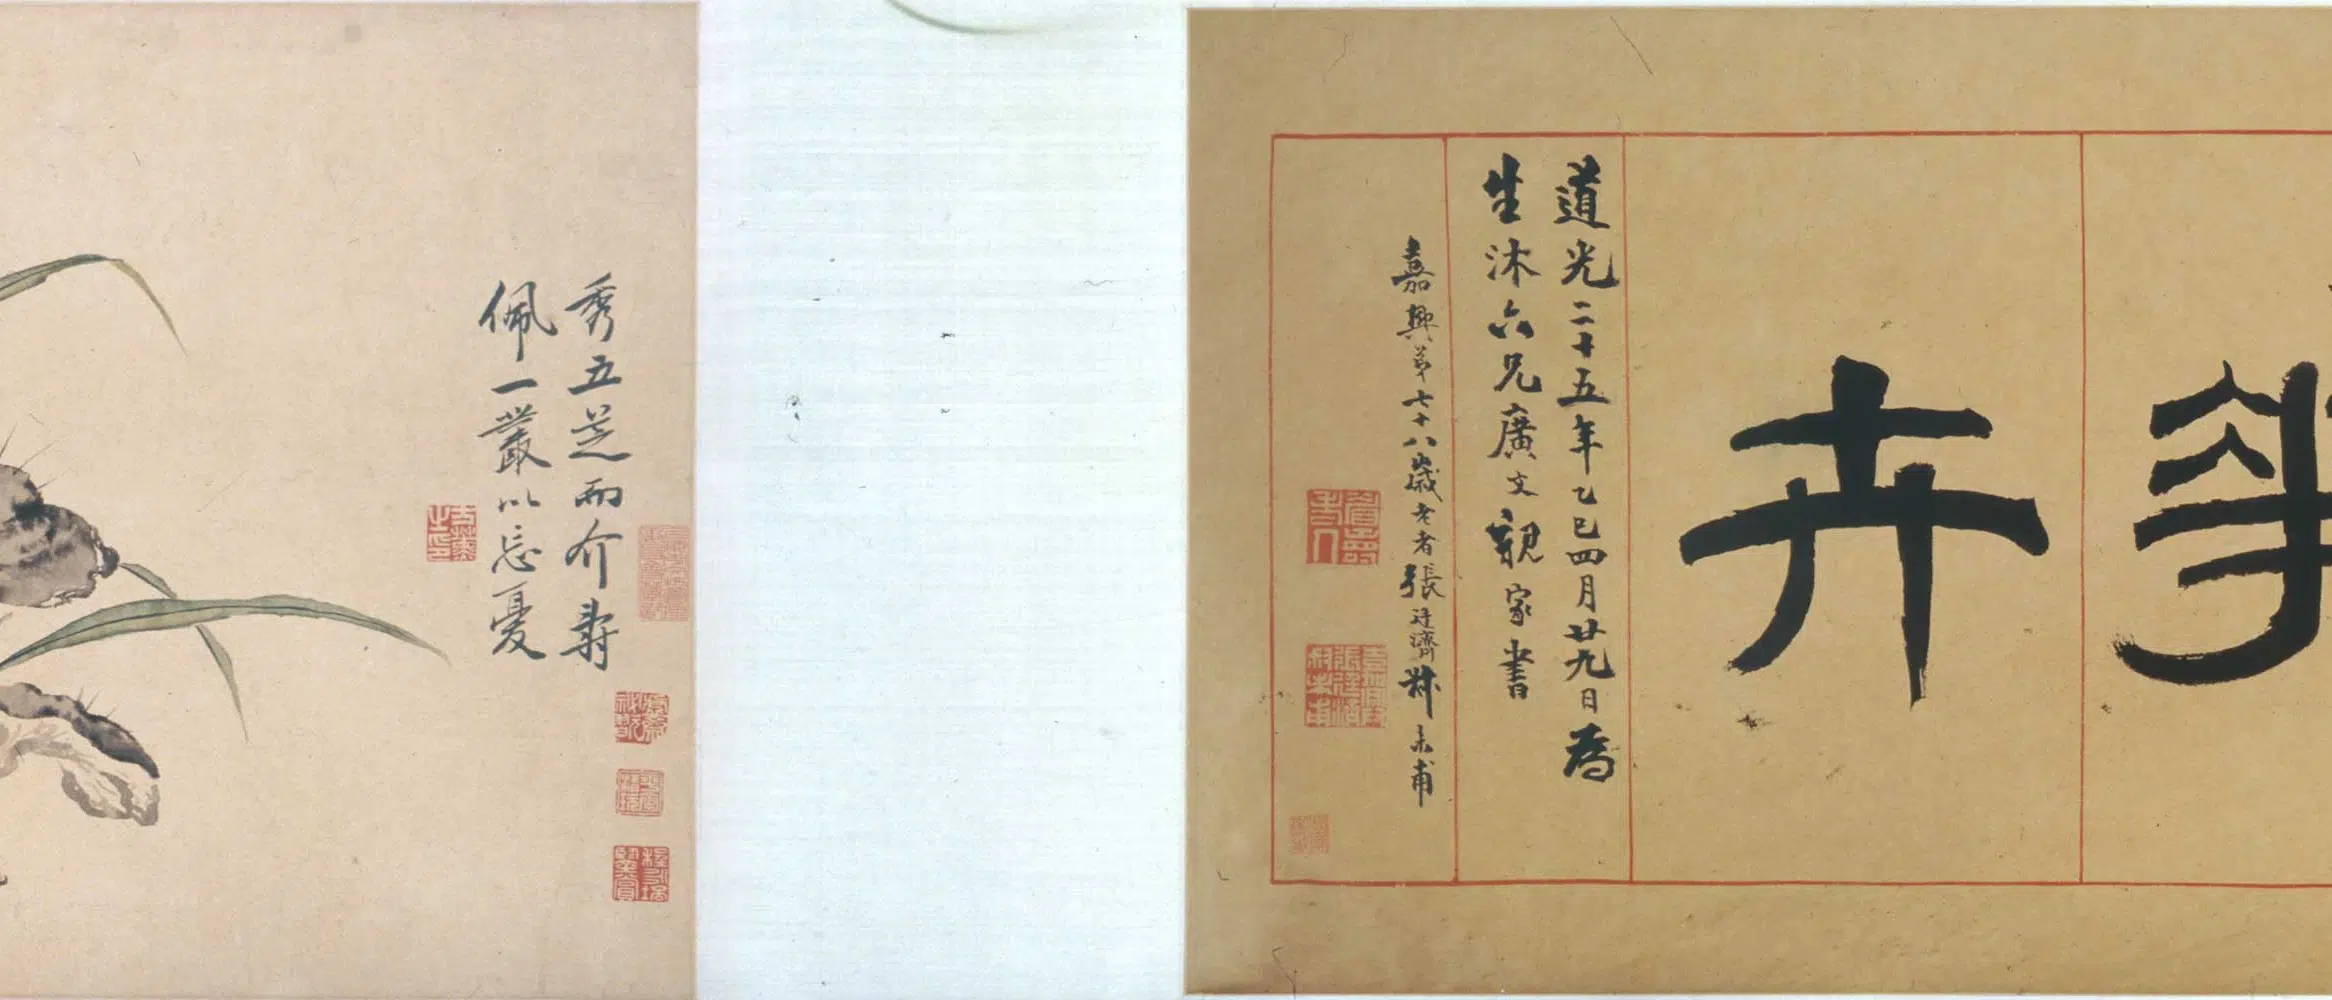 卉
道光二十五年乙巳四月廿九日為
生沐六兄廣文親家書
嘉興弟七十八歲老者張廷濟叔未甫
秀五芝而介壽
佩一叢以忘憂